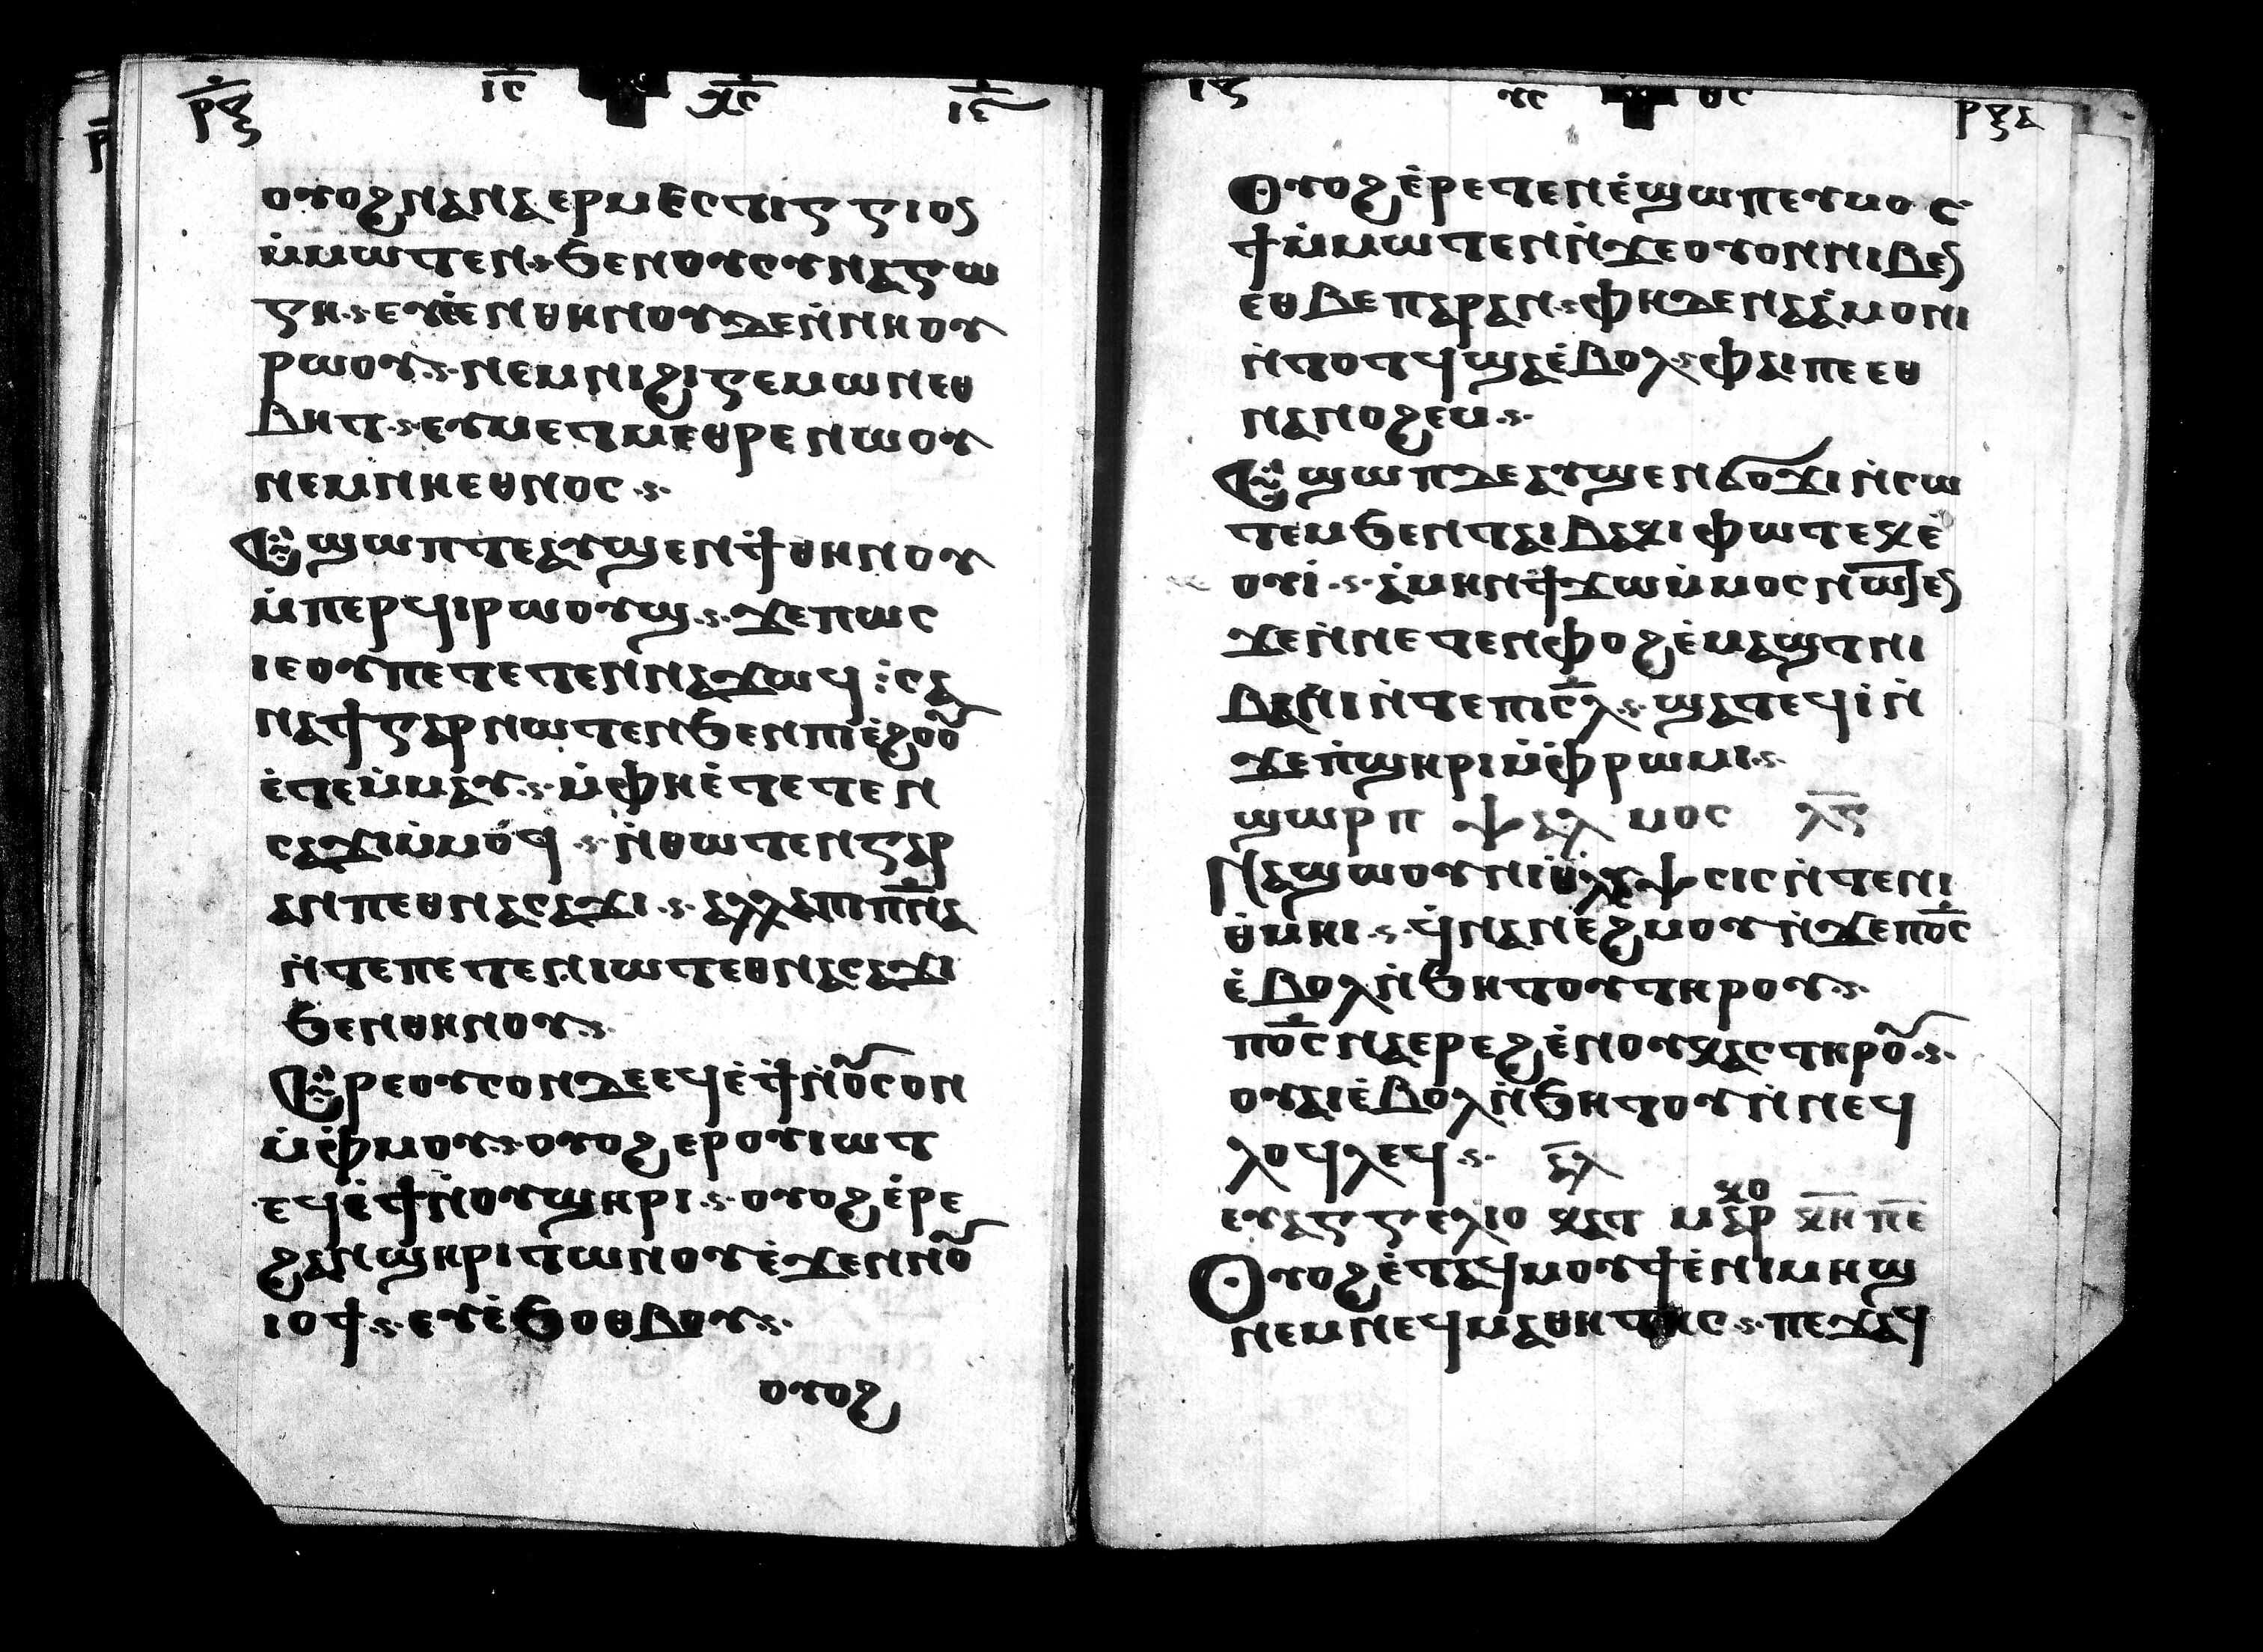 ⲣⲝ ⲓⲥ ⲭⲥ ⲓⲋ
ⲟⲩⲟϩ ⲛⲁⲛⲁⲉⲣⲙⲉⲥⲧⲓⲅⲅⲓⲟⲥ
ⲙ̇ⲙⲱⲧⲉⲛ ϧⲉⲛⲟⲩⲥⲩⲛⲁⲅⲱ
ⲅⲏ ⲉⲩⲉ̇ⲉⲛⲑⲏⲛⲟⲩ ⲇⲉ ⲛ̇ⲛⲏⲟⲩ
ⲣⲱⲟⲩ ⲛⲉⲙⲛⲓϩⲓⲅⲉⲙⲱⲛ ⲉⲑ
ⲃⲏⲧ ⲉⲩⲙⲉⲧⲙⲉⲑⲣⲉ ⲛⲱⲟⲩ
ⲛⲉⲙⲛⲏⲉⲑⲛⲟⲥ
Ⲉϣⲱⲡ ⲧⲉ ⲁⲩϣⲉⲛϯⲑⲏⲛⲟⲩ
ⲙ̇ⲡⲉⲣϥⲓⲣⲱⲟⲩϣ ϫⲉⲡⲱⲥ
ⲓⲉ ⲟⲩⲡⲉⲧⲉⲧⲉⲛⲛⲁϫⲱϥ ⲥⲁ
ⲛⲁϯ ⲅⲁⲣ ⲛⲱⲧⲉⲛ ϧⲉⲛⲡⲓⲉ̇ϩⲟⲟⲩ
ⲉ̇ⲧⲉⲙ̇ⲙⲁⲩ ⲙ̇ⲫⲏⲉ̇ⲧⲉⲧⲉⲛ
ⲥⲁϫⲓⲙ̇ⲙⲟϥ ⲛ̇ⲑⲱⲧⲉⲛ ⲅⲁⲣ
ⲁⲛ ⲡⲉⲑⲛⲁⲥⲁϫⲓ ⲁⲗⲗⲁ ⲡⲡ̅ⲛ̅ⲁ
ⲛ̇ⲧⲉⲡⲉⲧⲉⲛⲓⲱⲧ ⲉⲑⲛⲁⲥⲁϫⲓ
ϧⲉⲛⲑⲏⲛⲟⲩ
Ⲉⲣⲉ ⲟⲩⲥⲟⲛ ⲇⲉ ⲉϥⲉ̇ϯ ⲛ̇ⲟⲩⲥⲟⲛ
ⲙ̇ⲫ̇ⲙⲟⲩ ⲟⲩⲟϩ ⲉⲣⲟⲩⲓⲱⲧ
ⲉϥⲉ̇ϯ ⲛ̇ⲟⲩϣⲏⲣⲓ ⲟⲩⲟϩ ⲉ̇ⲣⲉ
ϩⲁⲛϣⲏⲣⲓ ⲧⲱⲛⲟⲩ ⲉ̇ϫⲉⲛⲛⲟⲩ
ⲓⲟϯ ⲉⲩⲉ̇ϧⲟⲑⲃⲟⲩ
ⲟⲩⲟϩ
ⲓⲋ ⲩⲥ ⲑⲥ ⲣⲝⲁ
Ⲟⲩⲟϩ ⲉ̇ⲣⲉⲧⲉⲛⲉ̇ϣⲱⲡⲉ ⲩⲙⲟⲥ
ϯ ⲙ̇ⲙⲱⲧⲉⲛ ⲛ̇ϫⲉ ⲟⲩⲟⲛⲛⲓⲃⲉⲛ
ⲉⲑⲃⲉ ⲡⲁⲣⲁⲛ ⲫⲏ ⲇⲉ ⲛⲁⲁ̇ⲙⲟⲛⲓ
ⲛ̇ⲧⲟⲧϥ ϣⲁⲉ̇ⲃⲟⲗ ⲫⲁⲓ ⲡⲉ ⲉⲑ
ⲛⲁⲛⲟϩⲉⲙ
Ⲉϣⲱⲡ ⲇⲉ ⲁⲩϣⲉⲛϭⲟϫⲓ ⲛ̇ⲥⲱ
ⲧⲉⲙ ϧⲉⲛⲧⲁⲓⲃⲁⲕⲓ ⲫⲱⲧ ⲉⲕⲉ̇
ⲟⲩⲓ̇ ⲁ̇ⲙⲏⲛ ϯϫⲱⲙ̇ⲙⲟⲥ ⲛⲱⲧⲉⲛ
ϫⲉ ⲛ̇ⲛⲉⲧⲉⲛⲫⲟϩ ⲉ̇ⲙⲁϣⲧ ⲛⲓ
ⲃⲁⲕⲓ ⲛ̇ⲧⲉⲡⲓⲥ̅ⲗ ϣⲁⲧⲉϥⲓ̇ ⲛ̇
ϫⲉⲡ̇ϣⲏⲣⲓ ⲙ̇ⲫ̇ⲣⲱⲙⲓ
ϣⲱⲣⲡ ⲯⲁⲗⲙⲟⲥ ⲗⲅ
Ⲛⲁϣⲱⲟⲩ ⲛⲓⲑⲗⲩⲯⲥⲓⲥ ⲛ̇ⲧⲉⲛⲓ
ⲑ̇ⲙⲏⲓ ϥ̇ⲛⲁⲛⲉϩⲙⲟⲩ ⲛ̇ϫⲉⲡⲟ̅ⲥ
ⲉ̇ⲃⲟⲗ ⲛ̇ϧⲏⲧⲟⲩ ⲧⲏⲣⲟⲩ
ⲡⲟ̅ⲥ ⲛⲁⲉⲣⲉϩ ⲉ̇ⲛⲟⲩⲕⲁⲥ ⲧⲏⲣⲟⲩ
ⲟⲩⲁⲓ ⲉ̇ⲃⲟⲗ ⲛ̇ϧⲏⲧⲟⲩ ⲛ̇ⲛⲉϥ
ⲗⲟϥⲗⲉϥ ⲁ̅ⲗ
ⲉⲩⲁⲅⲅⲉⲗⲓⲟ ⲕⲁⲧ ⲙⲁⲣⲕⲟ ⲕⲏ ⲡⲉ
Ⲟⲩⲟϩ ⲉ̇ⲧⲁϥⲙⲟⲩϯ ⲉ̇ⲛⲓⲙⲏϣ
ⲛⲉⲙⲛⲉϥⲙⲁⲑⲏⲧⲏⲥ ⲡⲉϫⲁϥ